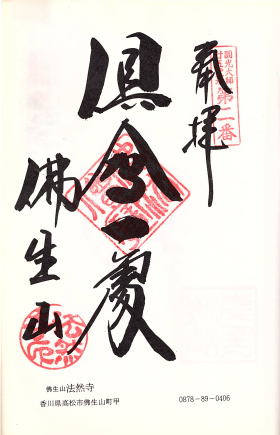 奉拝
圓光大師
第二番
倶會一處
佛生山
佛生山法然寺
香川県高松市佛生山町甲
0878-89-0406